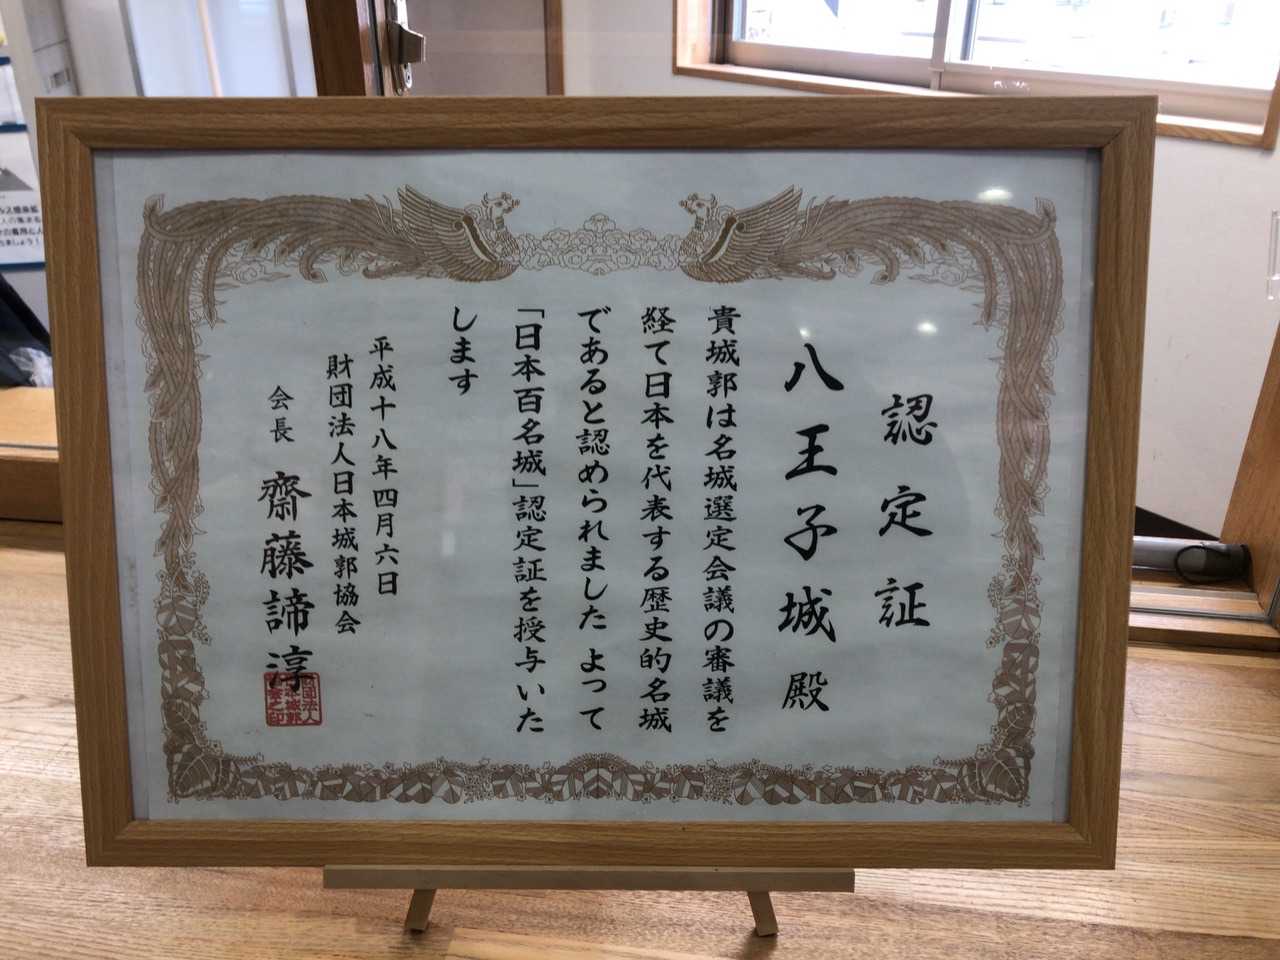 認定証
八王子城殿
貴城郭は名城選定会議の審議を
経て日本を代表する歴史的名城
であると認められました よって
「日本百名城」認定証を授与いた
します
平成十八年四月六日
財団法人日本城郭協会
会長 齋藤諦淳